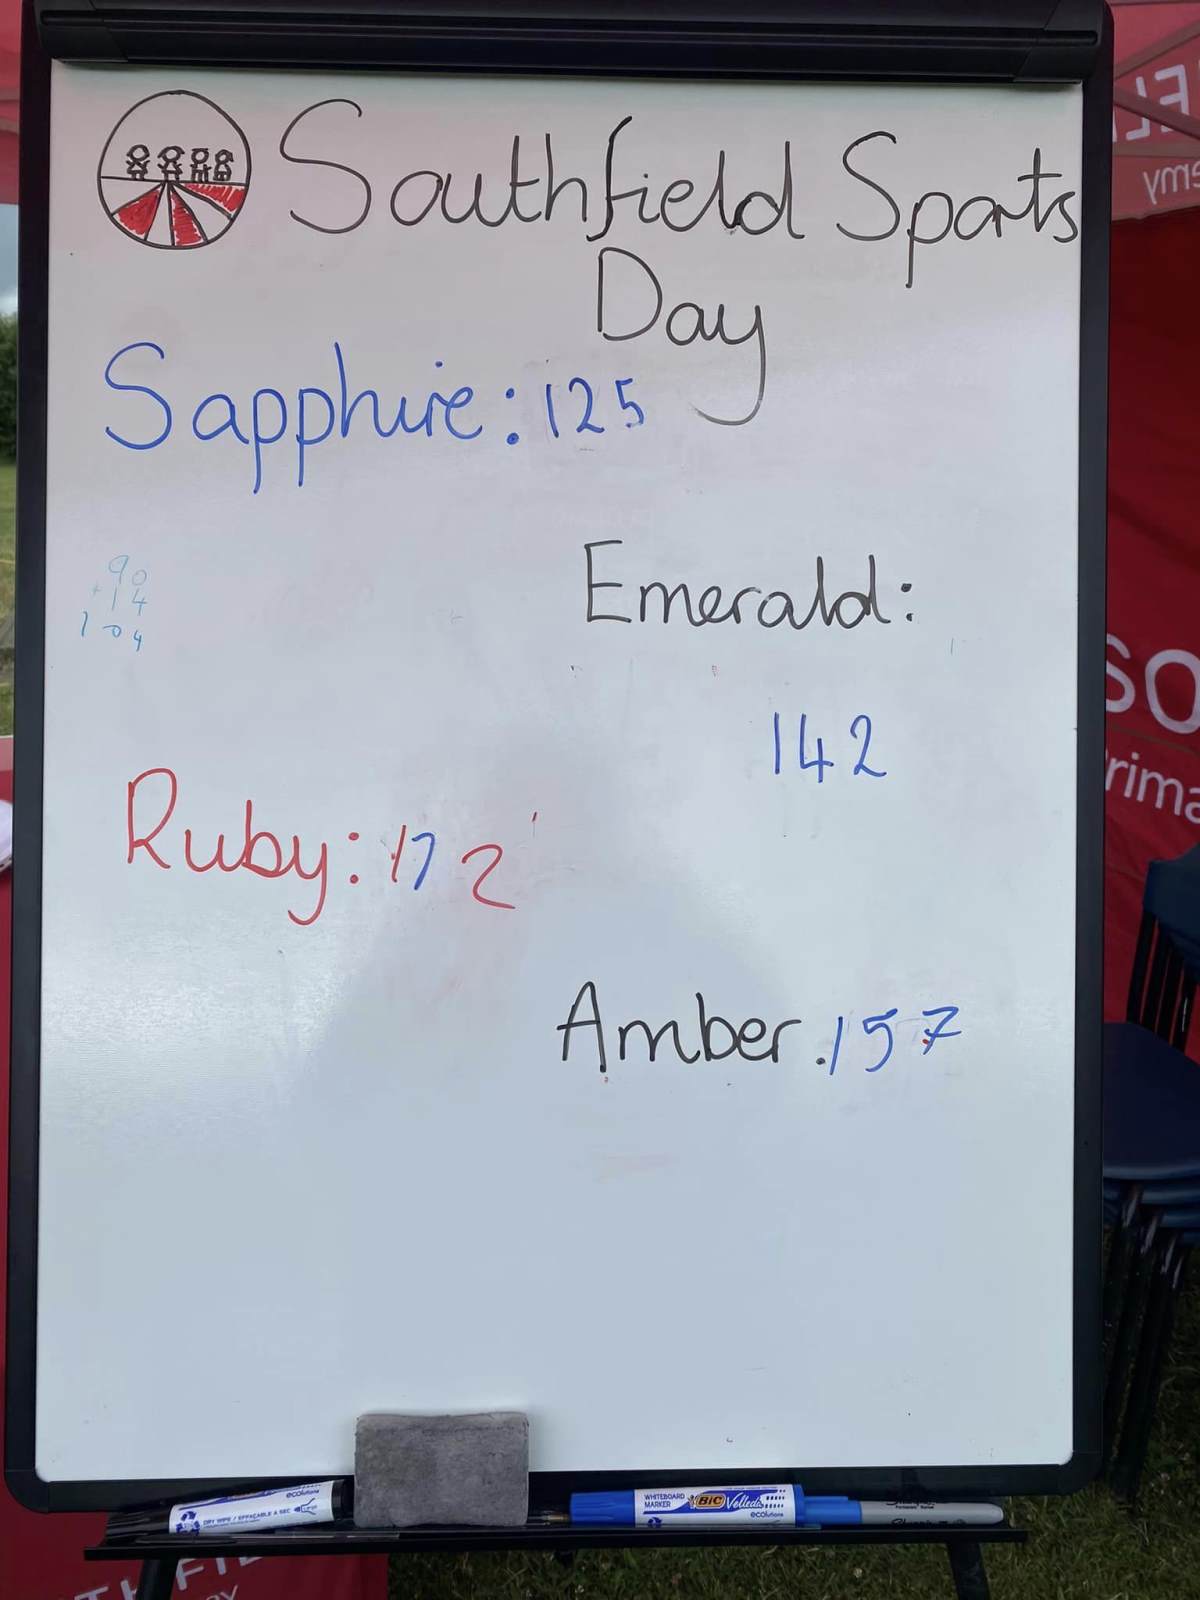 Southfield Sports
Day
Sapphire: 125
90
+14
104
Emerald:
142
Ruby: 172
Amber. 157
SO
rima
WHITEBOARD
MARKER
BIC Velleda
ecolutions
ecolutions
DRY WIPE / EFFAÇABLE A SEC